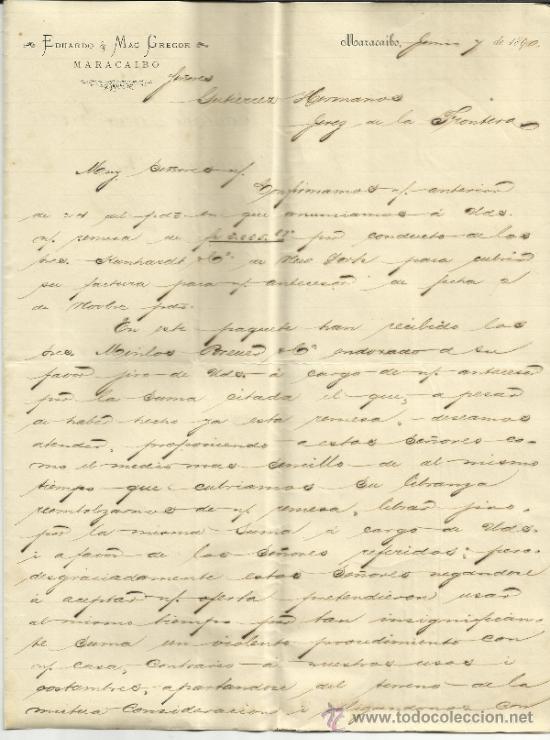 EDUARDO G. MAC GREGOR
MARACAIBO
Maracaibo, Junio 7 de 1890.
Señores
Gutierrez Hermanos
Jerez de la Frontera
Muy Señores n/.
Confirmamos n/. anterior
de 24 del ppdo. en que anunciamos á Uds.
n/. remesa de por conducto de los
Sres. Kunhardt & Ca. de New York para cubrir
su factura para n/. antecesor de fecha 2
de Novbre. pdo.
En este paquete han recibido los
Sres. Minlos Breuer & Ca. endosado á su
favor jiro de Uds. á cargo de n/. antecesor
por la suma citada el que, a pesar
de haber hecho ya esta remesa, deseamos
atender, proponiendo a estos Señores co-
mo el medio mas sencillo de al mismo
tiempo que cubriamos su libranza
reembolzarnos de n/. remesa, librar jiro
por la misma suma á cargo de Uds.
i a favor de los Señores referidos; pero
desgraciadamente estos Señores negandose
á aceptar n/. oferta pretendieron usar
al mismo tiempo por tan insignifican-
te suma un violento procedimiento con
n/. casa, contrario á nuestros usos i
costumbres, apartandose del terreno de la
mutua consideracion i ligandonos con
todocoleccion
www.todocoleccion.net